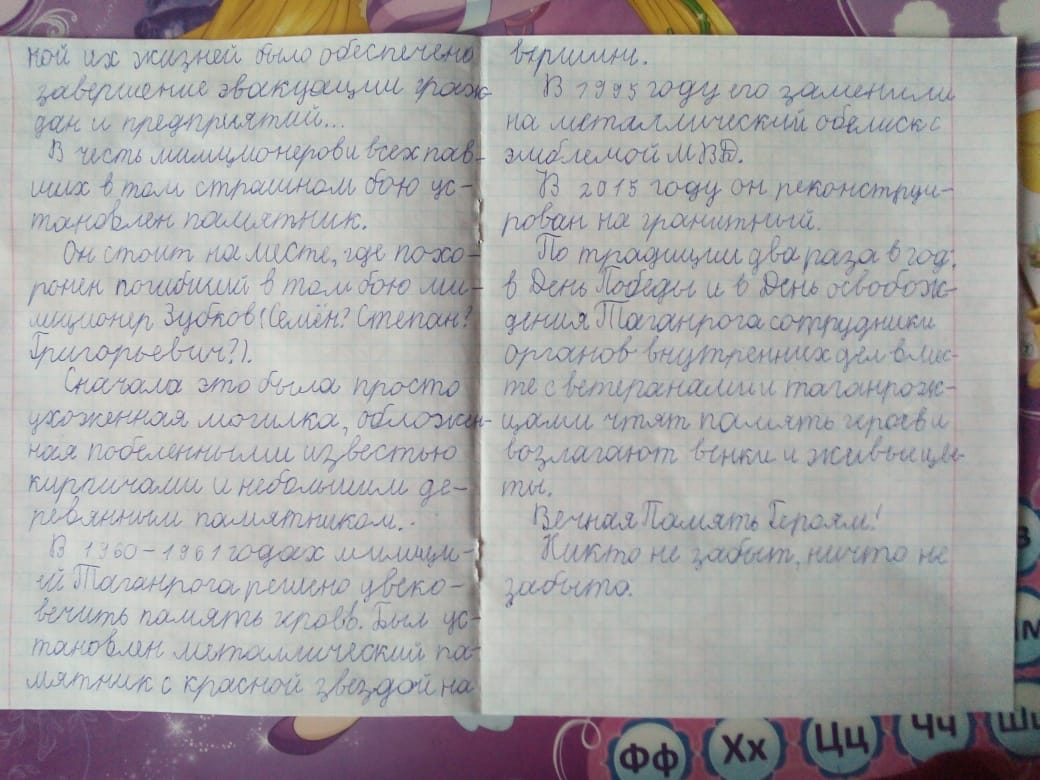 ной их жизней было обеспечено
завершение эвакуации граж-
дан и предприятий...
В честь милиционеров и всех пав-
ших в том страшном бою ус-
тановлен памятник.
Он стоит на месте, где похо-
ронен погибший в том бою ми-
лиционер Зубков (Семён? Степан?
Григорьевич?).
Сначала это была просто
ухоженная могилка, обложен-
ная побеленными известью
кирпичами и небольшим де-
ревянным памятником.
В 1960-1961 годах милици-
ей Таганрога решено увеко-
вечить память героев. Был ус-
тановлен металлический па-
мятник с красной звездой на
вершине.
В 1995 году его заменили
на металлический обелиск с
эмблемой МВД.
В 2015 году он реконструи-
рован на гранитный.
По традиции два раза в год,
в День Победы и в День освобож-
дения Таганрога сотрудники
органов внутренних дел вмес-
те с ветеранами и таганрож-
цами чтят память героев и
возлагают венки и живые цве-
ты.
Вечная Память Героям!
Никто не забыт, ничто не
забыто.
Фф
Хх
Цц
Чч